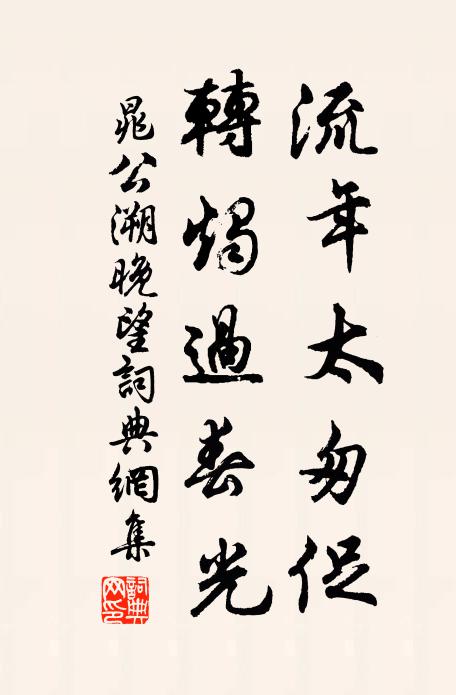 流年太匆促
轉燭過春光
晁公溯晚望詞典網集
詞典網印